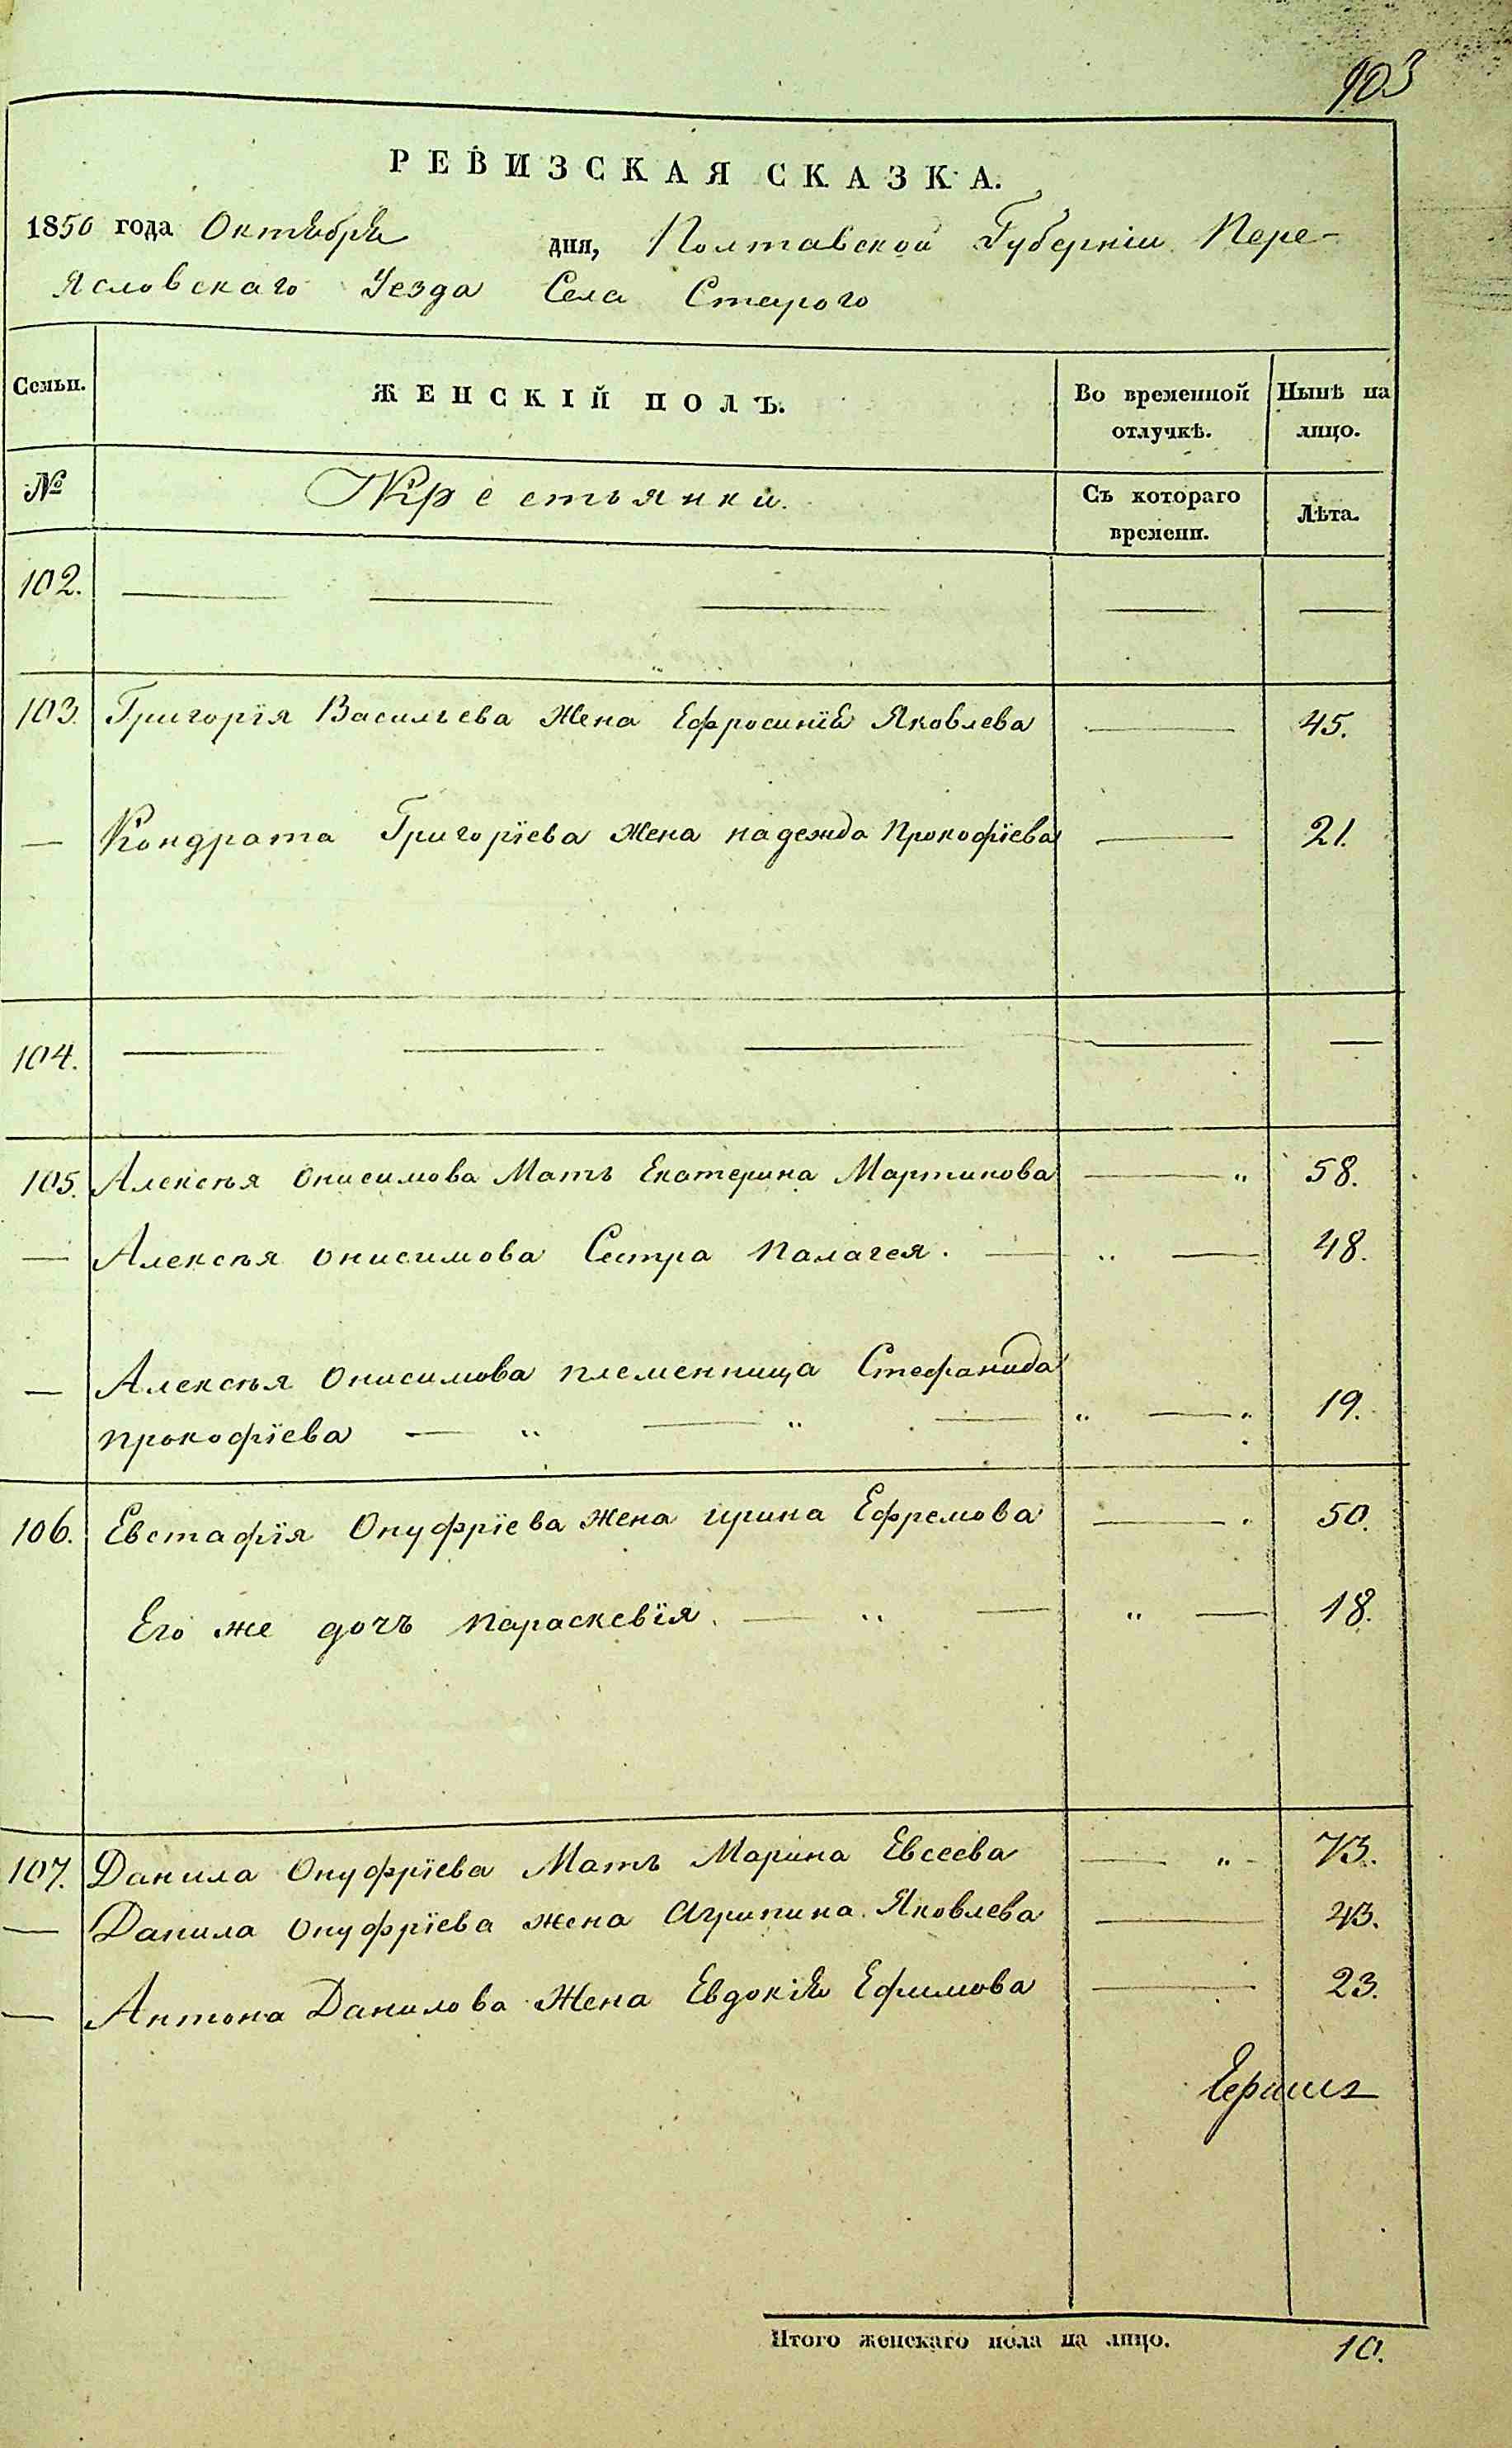 903
РЕВИЗСКАЯ СКАЗКА.
1850 года Октября дня, Полтавской Губерніи Пере-
Ясловскаго Уезда Села Старого
Семьи. ЖЕНСКІЙ ПОЛЪ. Во временной отлучкѣ. Нынѣ на лицо.
№ Крестьянки. Съ котораго времени. Лѣта.
102. — — — — —
103. Григорія Васильева Жена Ефросинія Яковлева — 45.
— Кондрата Григоріева Жена надежда Прокофіева — 21.
104. — — — — —
105. Алексѣя Онисимова Мать Екатерина Мартинова — „ 58.
— Алексѣя Онисимова Сестра Палагея. — „ — 48.
— Алексѣя Онисимова племенница Стефанида
прокофіева — „ — „ — „ — „ 19.
106. Евстафія Онуфріева жена ирина Ефремова — 50.
Его же дочь Параскевія. — „ — „ — 18.
107. Данила Онуфріева Мать Марина Евсеева — „ - 73.
— Данила Онуфріева жена Агрипина Яковлева — 43.
— Антона Данилова Жена Евдокія Ефимова — 23.
Итого женскаго пола на лицо. 10.